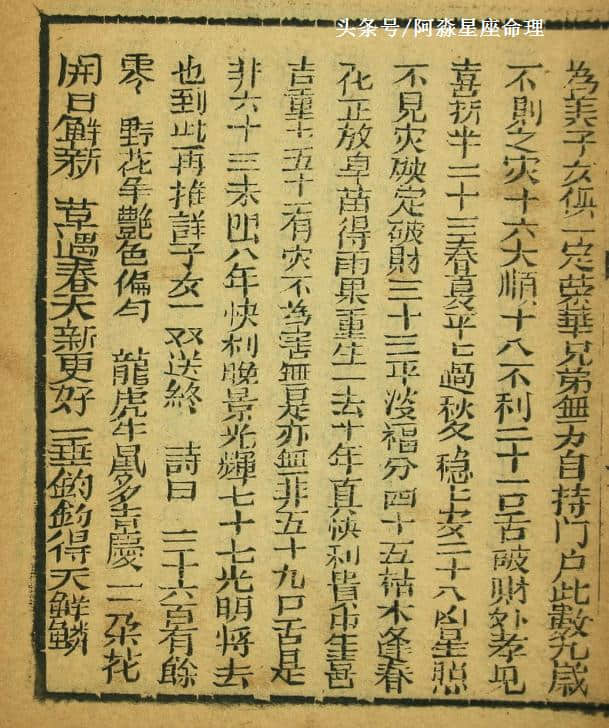 头条号/阿淼星座命理
為美子女俱一定荣華兄弟無力自持門户此數九歲
不則之灾十六大順十八不利二十一口舌破財外孝見
喜折半二十三春夏平七過秋冬穩上安二十八凶星照
不見灾殃定破財三十三平没福分四十五枯木逢春
花正放旱苗得雨果重生一去十年真快利貴生喜
吉重七五十二有灾不為害無是亦無非五十九口舌是
非六十三未四八年快利晚景光輝七十七光明将去
也到此再推詳子女一双送終 詩曰 三十六百有餘
零 野花年艷色偏匀 龍虎牛鼠多喜慶 一朵花
開日鮮新 草遇春天新更好 一垂釣釣得天鮮鱗